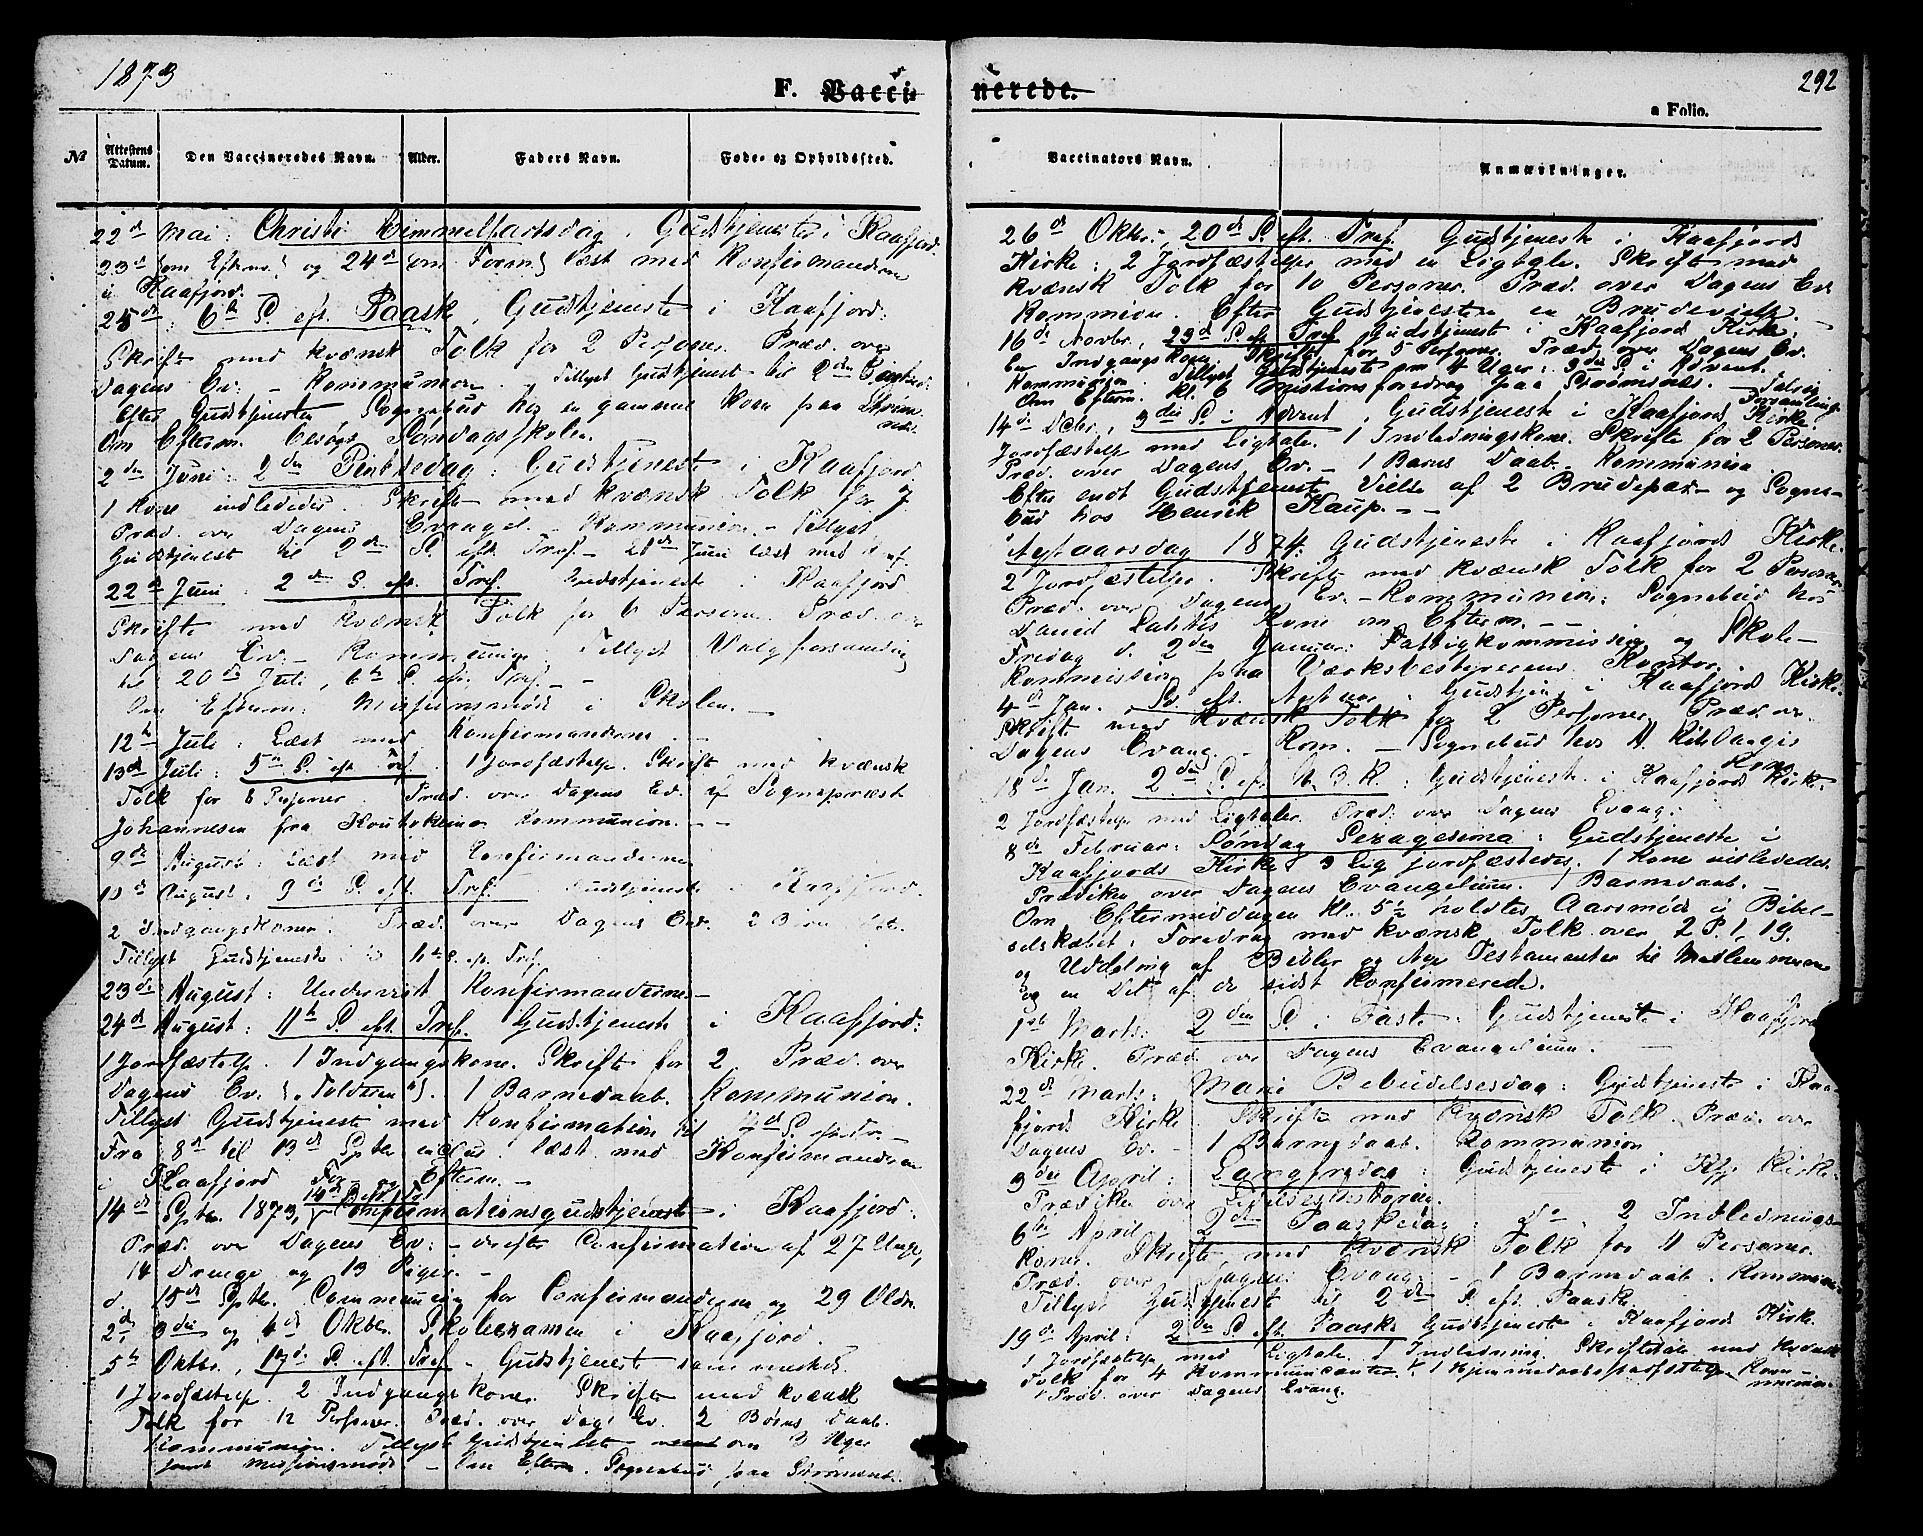 1873
F. Vacci-
nerede.
292
a Folio.
№
Attestens Datum.
Den Vaccineredes Navn.
Alder.
Faders Navn.
Føde- og Opholdssted.
Vaccinators Navn.
Anmærkninger.
22d Mai: Christi Himmelfartsdag. Gudstjeneste i Kaafjord.
23d (om Efterm.) og 24d (om Form.) læst med Konfirmanderne
i Kaafjord.
25d: 6te S. eft. Paask. Gudstjeneste i Kaafjord:
Skrifte med kvænsk Tolk for 2 Personer. Præd. over
Dagens Ev. - Kommunion. - Tillyst Gudstjenest til 2den
Efter Gudstjenesten Sognebud hos en gammel Kone paa Strøms-
næs.
Om Efterm. besøgt Søndagsskolen.
2den Juni: 2den Pintsedag: Gudstjeneste i Kaafjord
1 Kone indlededes. Skrifte med kvænsk Tolk for 7
Præd. over Dagens Evangel. - Kommunion. - Tillyst
Gudstjenest til 2den S. eft. Tref. - 21de Juni læst med
22d Juni: 2den S. eft. Tref. Gudstjeneste i Kaafjord
Skrifte med kvænsk Tolk for 6 Personer. Præd. over
Dagens Ev. - Kommunion. Tillyst Valgforsamling
til 20de Juli, 6te S. eft. Tref. -
Om Efterm. Missionsmøde i Skolen. -
12te Juli: Læst med Konfirmanderne. -
13d Juli: 5te S. eft. Tref. 1 Jordfæstelse. Skrift med kvænsk
Tolk for 8 Personer. Præd. over Dagens Ev. af Sognepræst
Johannesen fra Koutokeino. Kommunion. - -
9de August: Læst med Konfirmanderne
10de August. 9de S. eft. Tref. Gudstjeneste i Kaafjord.
2 Indgangskoner. Præd. over Dagens Ev. 2 Børn
Tillyst Gudstjeneste til 11te S. ef. Tref.
23de August: Undervist Konfirmanderne -
24d August: 11te S. eft. Tref. Gudstjeneste i Kaafjord:
1 Jordfæstelse. 1 Indgangskone. Skrifte for 2 Præd. over
Dagens Ev. ("Tolderen"). 1 Barnedaab. Kommunion.
Tillyst Gudstjeneste med Konfirmation til
Fra 8d til 13d Sptbr inclus. læst med Konfirmanderne
i Kaafjord For- og Efterm. -
14d Sptbr. 1873, 14d S. eft. Tr. Confirmationsgudstjeneste i Kaafjord:
Præd. over Dagens Ev: - derefter Confirmation af 27 Unge,
14 Drenge og 13 Piger. -
d. 15d Sptbr. Communion for Confirmanderne og 29 Ældre.
2d, 3die og 4d Oktbr. Skoleexamen i Kaafjord.
5te Oktbr, 17d S. eft. Tref. Gudstjeneste sammesteds.
1 Jordfæstelse. 2 Indgangskoner. Skrifte med kvænsk
Tolk for 12 Personer. Præd. over Dags Ev. 2 Børns Daab.
Kommunion. Tillyst Gudstjeneste om 3 Uger
samt Missionsmøde - Om Efterm. Sognebud paa Strømsnæs.
26d Oktbr., 20d S. eft. Tref. Gudstjeneste i Kaafjords
Kirke: 2 Jordfæstelser med en Ligtale. Skrift med
kvænsk Tolk for 10 Personer. Præd. over Dagens Ev.
Kommunion. Efter Gudstjenesten en Brudevielse. -
16d Novbr., 23d S. ef. Tref. Gudstjenest i Kaafjord Kirke.
En Indgangskone. Skrifte for 5 Personer. Præd. over Dagens Ev.
Kommunion. Tillyst Gudstjeneste om 4 Uger: 3die S. i Advent.
Om Efterm. kl. 6 Missionsforedrag paa Strømsnæs. - Talrig
Forsamling.
14d Dcbr, 3die S. i Advent. Gudstjeneste i Kaafjord Kirke.
Jordfæstelse med Ligtale. 1 Indledningskone. Skrifte for 2 Personer.
Præd. over Dagens Ev. - 1 Barns Daab. Kommunion.
Efter endt Gudstjeneste Vielse af 2 Brudepar - og Sogne-
bud hos Henrik Kaup. - -
Nytaarsdag 1874: Gudstjeneste i Kaafjord Kirke.
2 Jordfæstelser. Skrifte med kvænsk Tolk for 2 Personer
Præd. over Dagens Ev. - Kommunion: Sognebud hos
David Lahtis Kone om Efterm. - -
Fredag d. 2den Januar: Fattigkommission og Skole-
kommission paa Værksbestyrerens Kontor.
4d Jan. S. eft. Nytaar. Gudstjen. i Kaafjord Kirke.
Skrift med kvænsk Tolk for 2 Personer. Præd. ov.
Dagens Evang. - Kom. - Sognebud hos
Kone
18d Jan. 2den S. ef. H. 3 K: Gudstjeneste i Kaafjord Kirke.
2 Jordfæstelse med Ligtaler. Præd. over Dagens Evang:
8d Februar: Søndag Sexagesima: Gudstjeneste i
Kaafjords Kirke 3 Lig jordfæstedes. 1 Kone indlededes.
Prædiken over Dagens Evangelium. 1 Barnedaab. -
Om Eftermiddagen Kl. 5½ holdtes Aarsmøde i Bibel-
selskabet: Foredrag med kvænsk Tolk over 2 P. 1, 19.
og Uddeling af Bibler og Nye Testamenter til Medlemmerne
og en Del af de sidst Konfirmerede.
1ste Marts: 2den S. i Faste. Gudstjeneste i Kaafjord
Kirke. Præd. over Dagens Evangelium. -
22d Marts: Mariæ Bebudelsesdag: Gudstjeneste i Kaa-
fjords Kirke. Skrifte med kvænsk Tolk. Præd. over
Dagens Ev. - 1 Barnedaab. Kommunion
3die April: Langfredag: Gudstjeneste i Kfj Kirke.
Prædiken over Lidelseshistorien.
6te April 2den Paaskedag: Do. 2 Indlednings-
koner. Skrifte med kvænsk Tolk for 11 Personer.
Præd. over Dagens Evang: - 1 Barnedaab. Kommunion.
Tillyst Gudstjenest til 2den S. eft. Paaske.
19d April: 2den S. eft. Paaske Gudstjeneste i Kaafjord Kirke.
1 Jordfæstelse med Ligtale. 1 Indledning. Skriftetale med kvænsk
Tolk for 4 Kommunicanter. 1 Hjemmedaabsstadfæstelse. Kom-
munion.
Præd. over Dagens Evang.